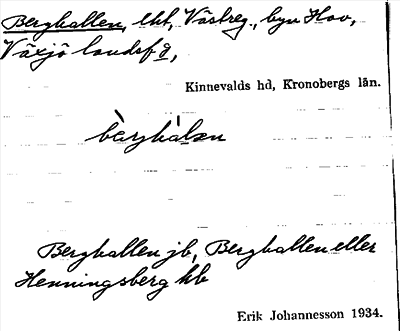 Berghallen, lht, Västreg., byn Hov,
Växjö landsf d,
Kinnevalds hd, Kronobergs län.
bàrghàlən
Berghallen jb, Berghallen eller
Henningsberg kb
Erik Johannesson 1934.